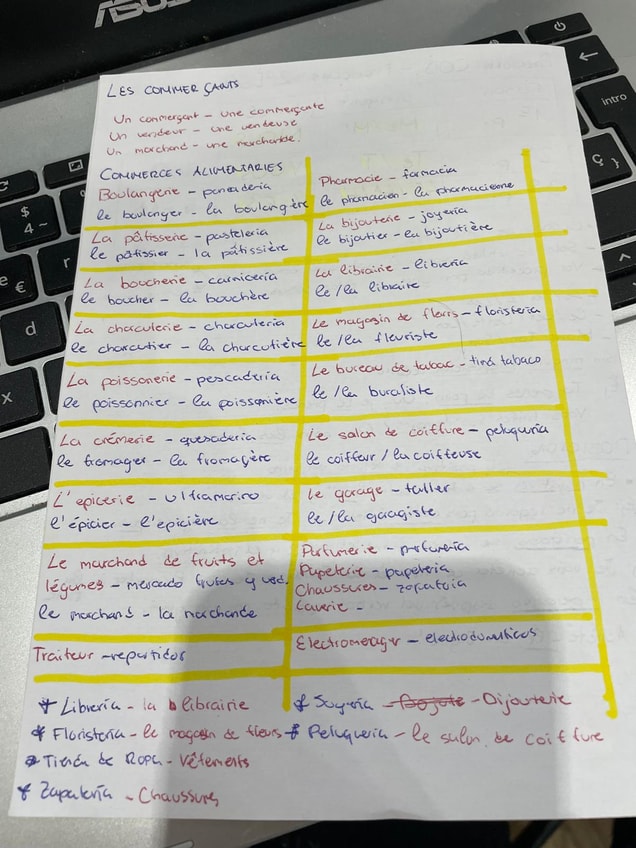 ASUS
LES COMMERÇANTS
Un commerçant - une commerçante
Un vendeur - une vendeuse
Un marchand - une marchande.
COMMERCES ALIMENTARIES
Boulangerie - panadería
le boulanger - la boulangère
La pâtisserie - pasteleria
le pâtissier - la pâtissière
La boucherie - carniceria
le boucher - la bouchère
La charcuterie - charcuteria
le charcutier - la charcutière
La poissonerie - pescaderia
le poissonnier - la poissonière
La crémerie - quesaderia
le fromager - la fromagère
L'epicerie - ultramarino
l'épicier - l'epicière
Le marchand de fruits et
légumes - mercado frutas y ved.
le marchand - la marchande
Traiteur - repartidor
Pharmacie - farmacia
le pharmacien - la pharmacienne
La bijouterie - joyeria
le bijoutier - la bijoutière
La librairie - libreria
le/la libraire
Le magasin de fleurs - floristeria
le/la fleuriste
Le bureau de tabac - tind tabaco
le/la buraliste
Le salon de coiffure - peluquria
le coiffeur/la coiffeuse
Le garage - taller
le/la garagiste
Parfumerie - perfumeria
Papeterie - papeteria
Chaussures - zapatoia
Laverie -
Electromenager - electrodomesticos
* Libreria - la librairie
* Floristeria - le magasin de fleurs
* Tienda de Ropa - Vêtements
* Zapateria - Chaussures
* Joyeria - Bijouterie
* Peluqueria - le salon de coiffure
$
4
€
r
d
x
intro
ç